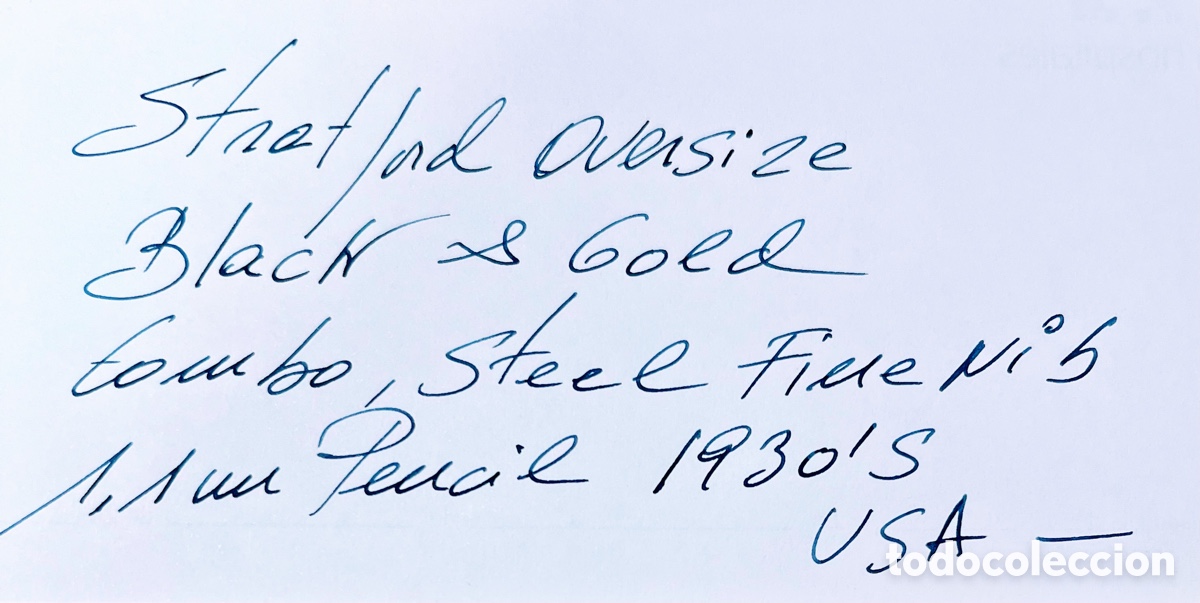 Stratford Oversize
Black & Gold
Combo, Steel Fine Nib
1,1mm Pencil 1930's
USA —
todocoleccion